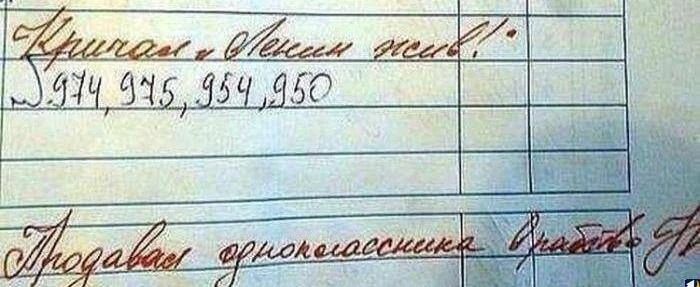 Кричал „Ленин жив!"
974, 975, 954, 950
Продавал одноклассника в рабство